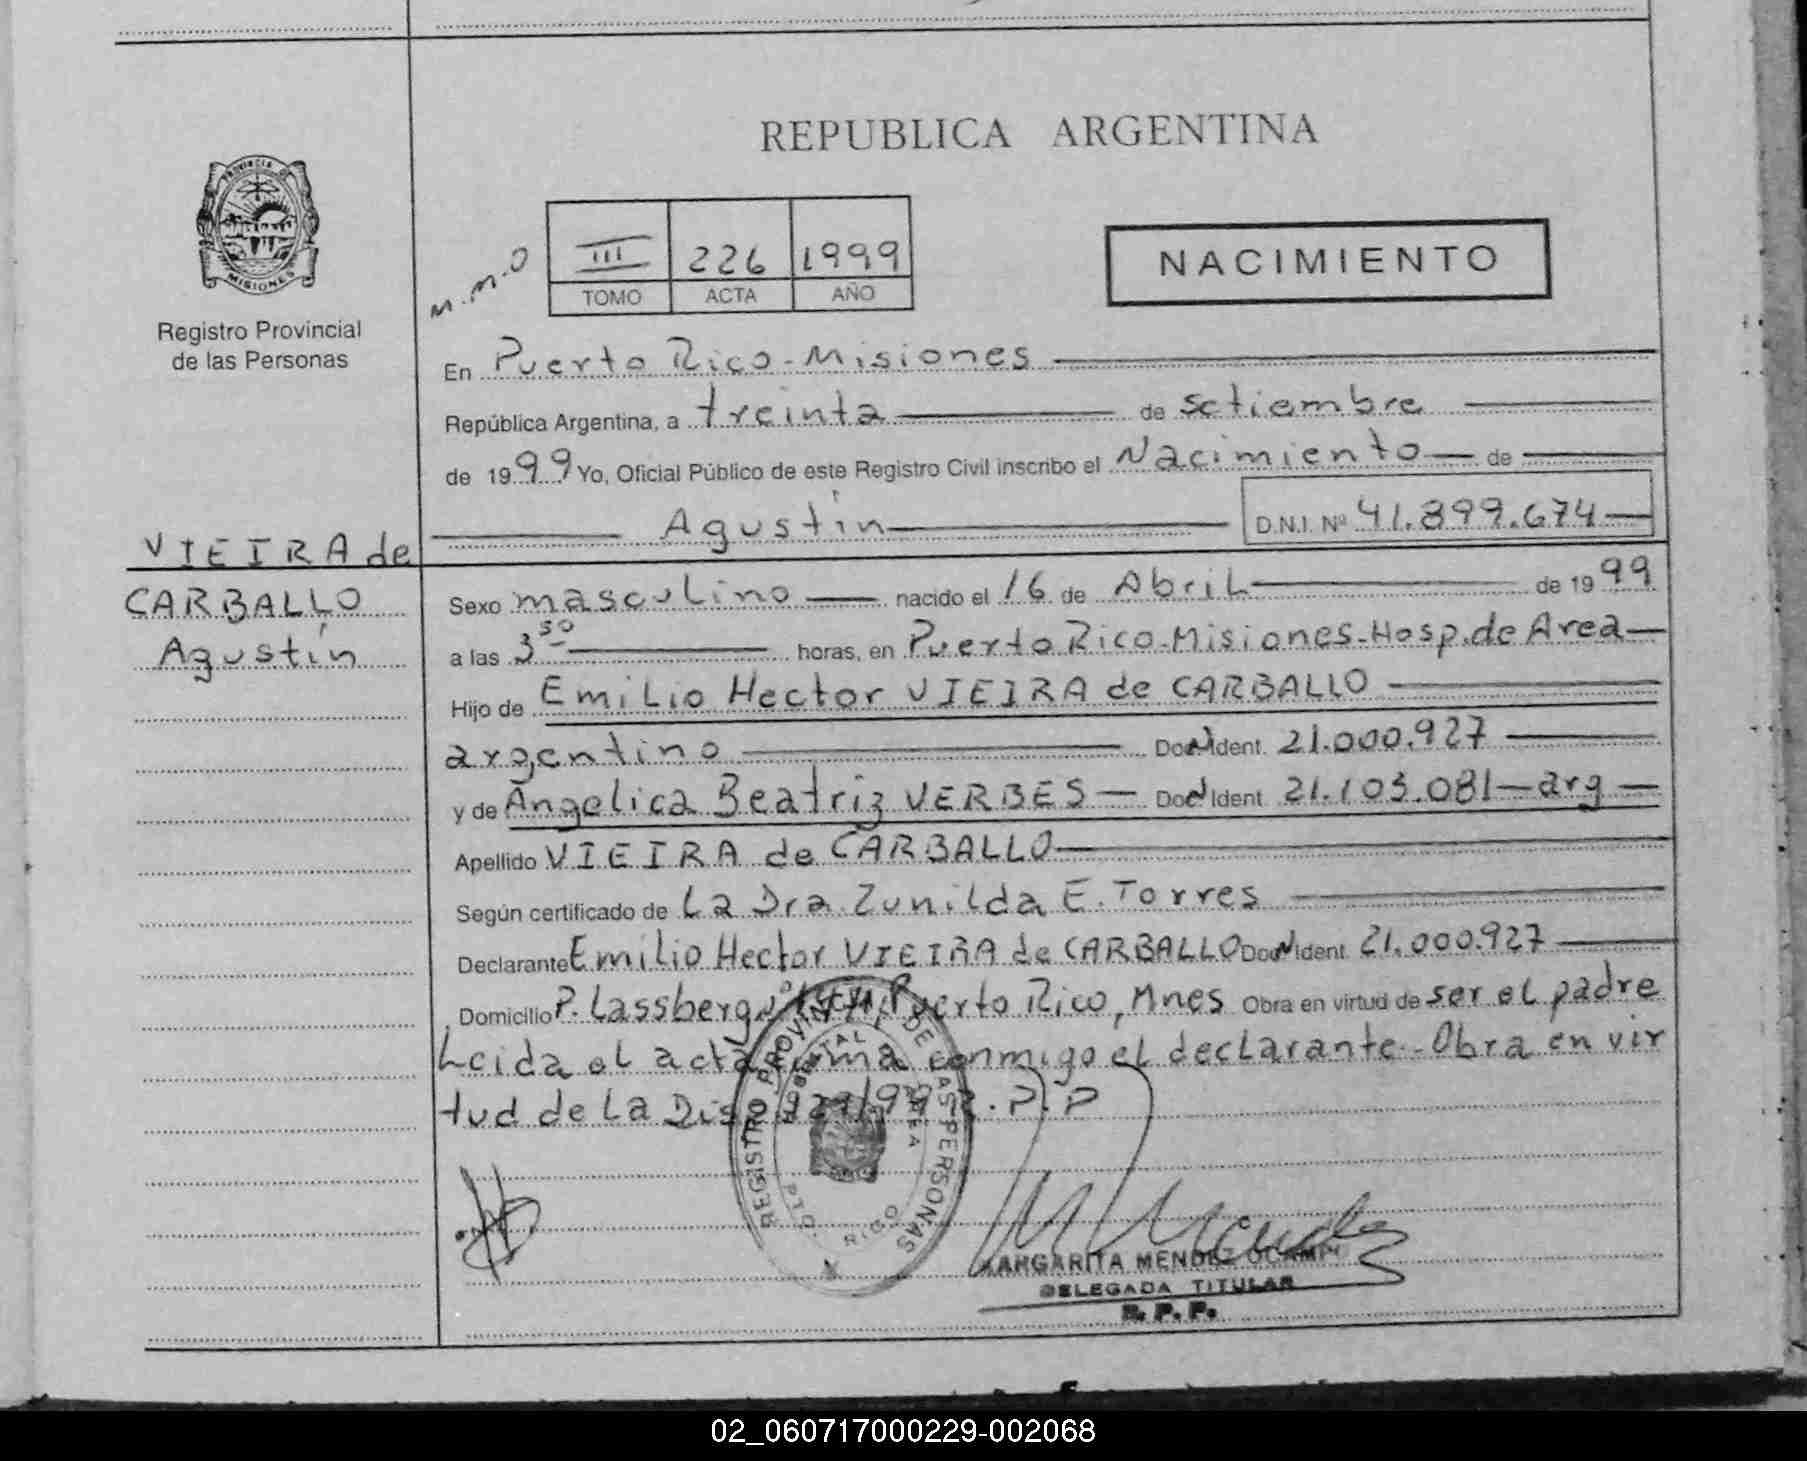 REPUBLICA ARGENTINA
PROVINCIA DE
MISIONES
Registro Provincial
de las Personas
M.M.O
III 226 1999
TOMO ACTA AÑO
NACIMIENTO
En Puerto Rico-Misiones
República Argentina, a treinta de setiembre
de 1999 Yo, Oficial Público de este Registro Civil inscribo el Nacimiento de
Agustín D.N.I. Nº 41.899.674
VIEIRA de
CARBALLO
Agustín
Sexo masculino nacido el 16 de Abril de 1999
a las 3 50 horas, en Puerto Rico-Misiones-Hosp.de Area
Hijo de Emilio Hector VIEIRA de CARBALLO
argentino Doc N Ident. 21.000.927
y de Angelica Beatriz VERBES Doc N Ident. 21.103.081-arg
Apellido VIEIRA de CARBALLO
Según certificado de La Dra. Zunilda E. Torres
Declarante Emilio Hector VIEIRA de CARBALLO Doc N Ident. 21.000.927
Domicilio P. Lassberg Puerto Rico, Mnes Obra en virtud de ser el padre
Leida el acta firma conmigo el declarante.-Obra en vir
tud de La Disp. /99 R.P.P
REGISTRO PROVINCIAL DE LAS PERSONAS
PTO. RICO
MARGARITA MENDEZ OCAMPO
DELEGADA TITULAR
R.P.P.
02_060717000229-002068